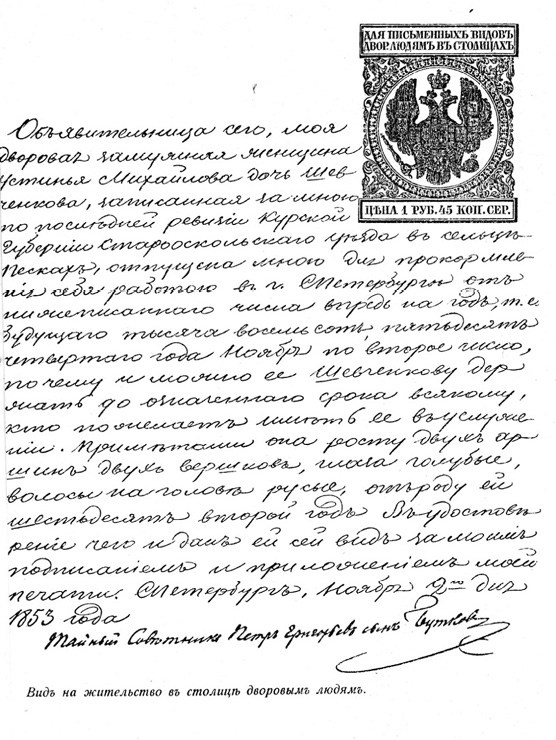 ДЛЯ ПИСЬМЕННЫХЪ ВИДОВЪ
ДВОР. ЛЮДЯМЪ ВЪ СТОЛИЦАХЪ
ЦѢНА 1 РУБ. 45 КОП. СЕР.
Объявительница сего, моя
дворовая замужняя женщина
Устинья Михайлова дочь Шев-
ченкова, записанная за мною
по послѣдней ревизіи Курской
Губерніи Старооскольскаго уѣзда въ сельцѣ
Пескахъ, отпущена мною для прокормле-
нія себя работою въ г. СПетербургѣ отъ
нижеписаннаго числа впредь на годъ, т. е.
будущаго тысяча восемьсотъ пятьдесятъ
четвертаго года Ноября по второе число,
почему и можно ее Шевченкову дер-
жать до означеннаго срока всякому,
кто пожелаетъ имѣть ее въ услуже-
ніи. Примѣтами она росту двухъ ар-
шинъ двухъ вершковъ, глаза голубые,
волосы на головѣ русые, отъ роду ей
шестьдесятъ второй годъ. Въ удостовѣ-
реніе чего и данъ ей сей видъ за моимъ
подписаніемъ и приложеніемъ моей
печати. СПетербургъ, Ноября 2го дня
1853 года
Тайный Совѣтникъ Петръ Григорьевъ сынъ Бутковъ
Видъ на жительство въ столицѣ дворовымъ людямъ.